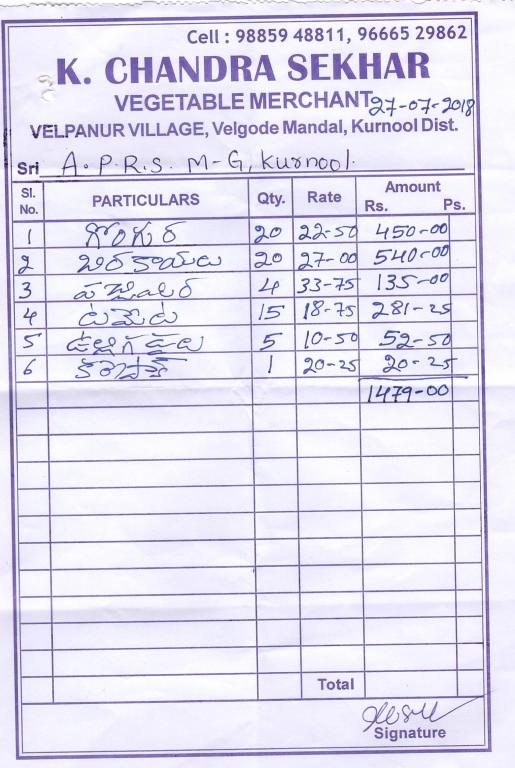 Cell : 98859 48811, 96665 29862
K. CHANDRA SEKHAR
VEGETABLE MERCHANT 27-07-2018
VELPANUR VILLAGE, Velgode Mandal, Kurnool Dist.
Sri A.P.R.S. M-G, Kurnool.
Sl. No. PARTICULARS Qty. Rate Amount Rs. Ps.
1 గోంగూర 20 22-50 450-00
2 బీరకాయలు 20 27-00 540-00
3 4 33-75 135-00
4 టమేట 15 18-75 281-25
5 ఉల్లిగడ్డలు 5 10-50 52-50
6 1 20-25 20-25
1479-00
Total
Signature